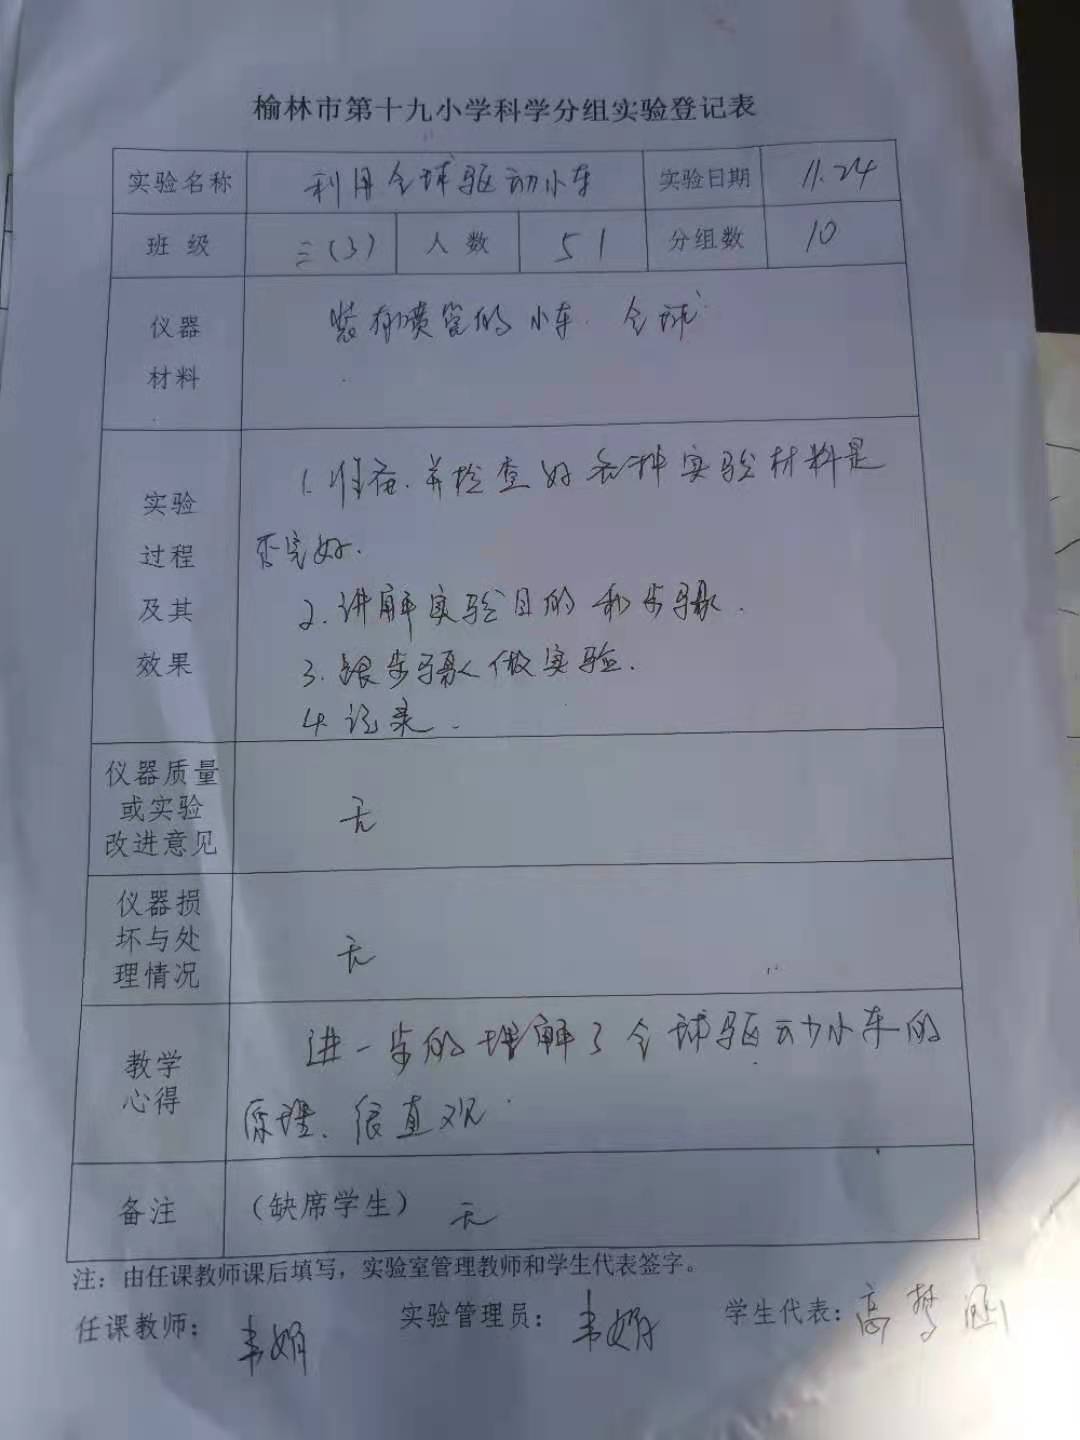 榆林市第十九小学科学分组实验登记表
实验名称 利用全球驱动小车 实验日期 11.24
班级 三(3) 人数 51 分组数 10
仪器 装有喷管的小车. 全球
材料
1. 准备.并检查好各种实验材料是
实验
过程 否完好.
及其 2. 讲解实验目的和步骤.
效果 3. 跟步骤做实验.
4. 记录.
仪器质量
或实验 无
改进意见
仪器损
坏与处 无
理情况
进一步的理解了全球驱动小车的
教学
心得 原理、很直观
备注 (缺席学生) 无
注：由任课教师课后填写，实验室管理教师和学生代表签字。
任课教师： 韦娟 实验管理员： 韦娟 学生代表: 高梦涵